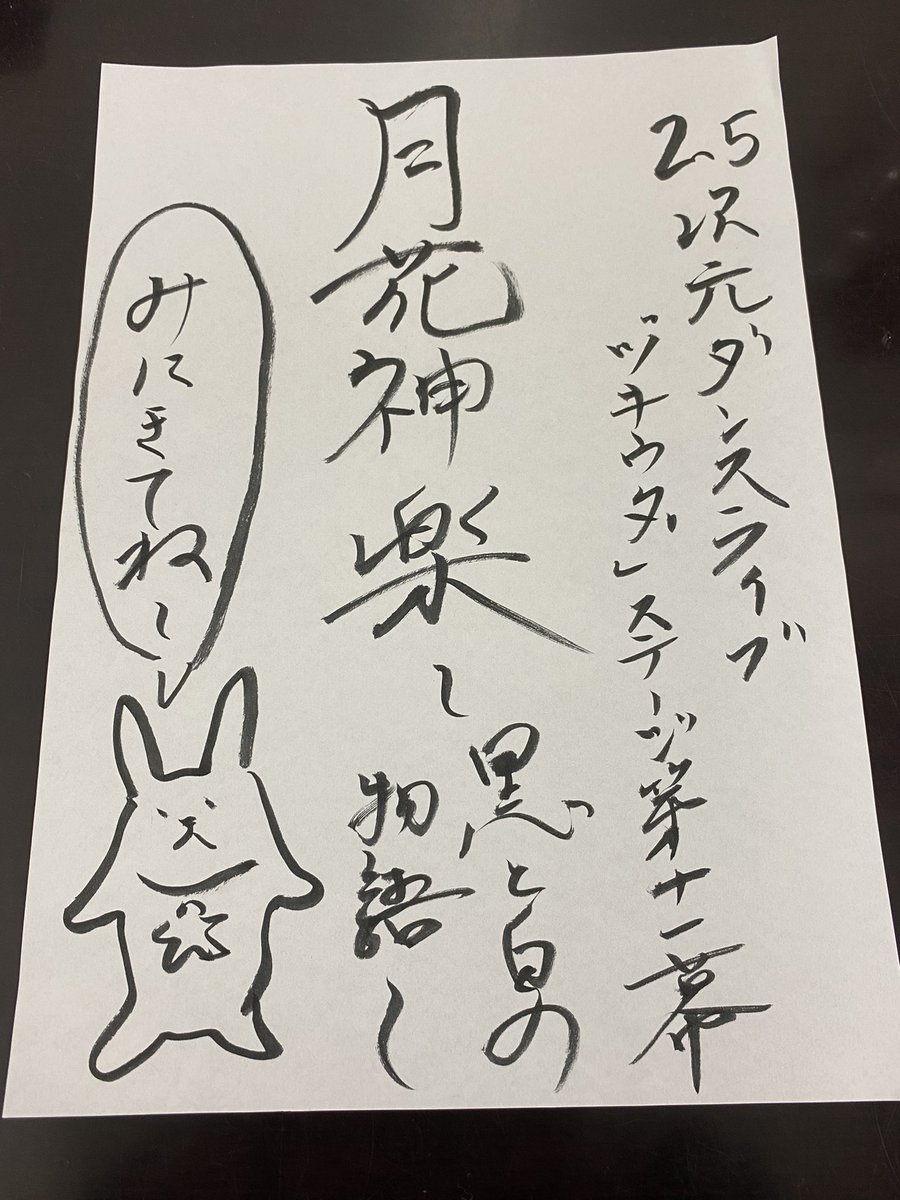 2.5次元ダンスライブ
「ツキウタ。」ステージ第十一幕
月花神楽〜黒と白の
物語〜
みにきてね〜